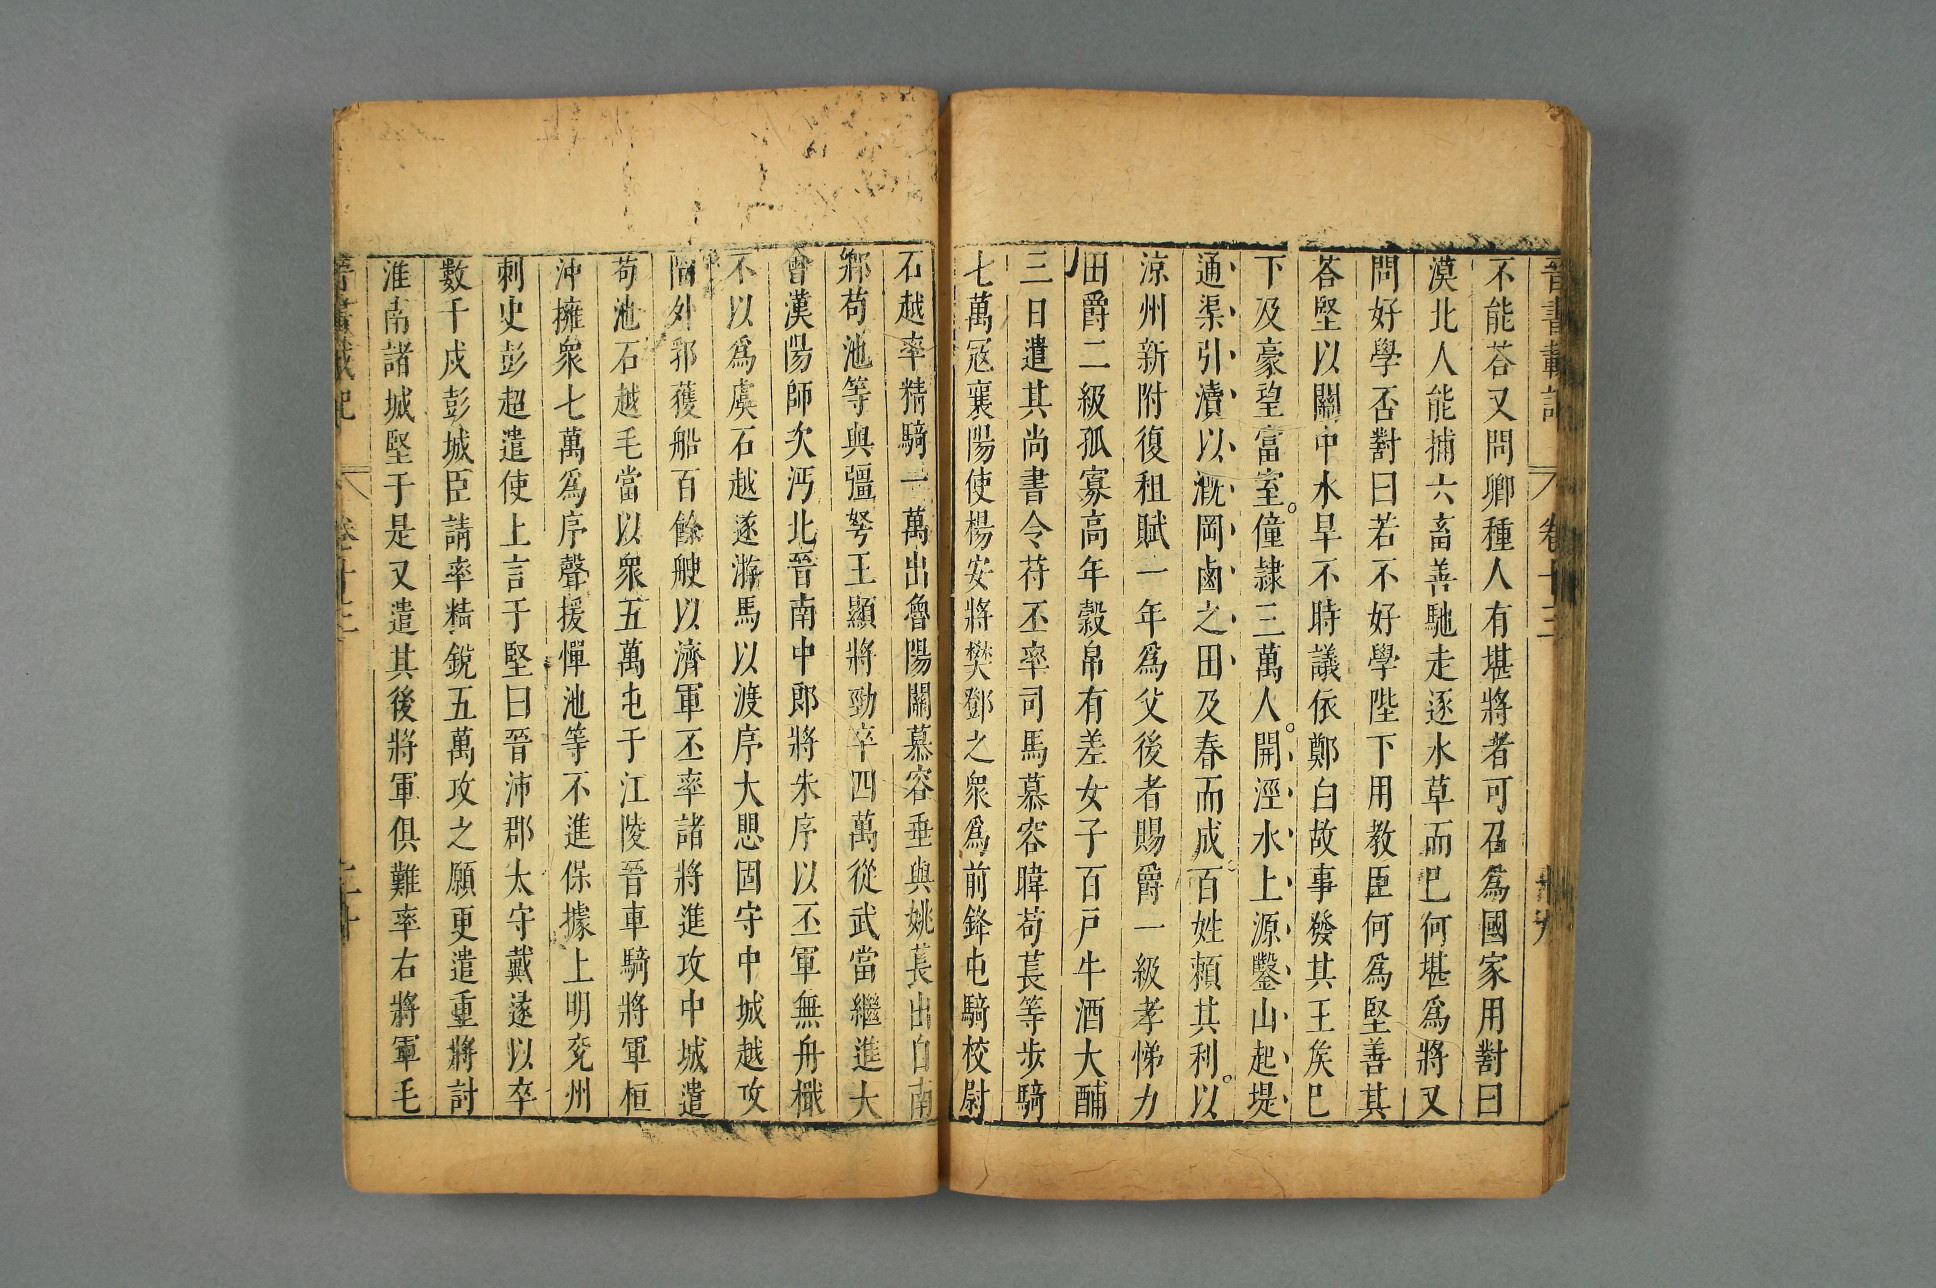 晉書載記 卷十三
不能荅又問卿種人有堪將者可召爲國家用對曰
漠北人能捕六畜善馳走逐水草而巳何堪爲將又
問好學否對曰若不好學陛下用教臣何爲堅善其
荅堅以關中水旱不時議依鄭白故事發其王矦巳
下及豪望富室。僮隸三萬人。開涇水上源鑿山起堤
通渠引瀆以溉岡鹵之田及春而成百姓賴其利。以
涼州新附復租賦一年爲父後者賜爵一級孝悌力
田爵二級孤寡高年穀帛有差女子百戸牛酒大酺
三日遣其尚書令苻丕率司馬慕容暐苟萇等步騎
七萬冦襄陽使楊安將樊鄧之衆爲前鋒屯騎校尉
石越率精騎一萬出魯陽關慕容垂與姚萇出自南
鄉苟池等與彊弩王顯將勁卒四萬從武當繼進大
會漢陽師次沔北晉南中郎將朱序以丕軍無舟檝
不以爲虞石越遂游馬以渡序大懼固守中城越攻
陷外郛獲船百餘艘以濟軍丕率諸將進攻中城遣
苟池石越毛當以衆五萬屯于江陵晉車騎將軍桓
沖擁衆七萬爲序聲援憚池等不進保據上明兗州
刺史彭超遣使上言于堅曰晉沛郡太守戴逯以卒
數千戍彭城臣請率精銳五萬攻之願更遣重將討
淮南諸城堅于是又遣其後將軍俱難率右將軍毛
晉書載記 卷十三